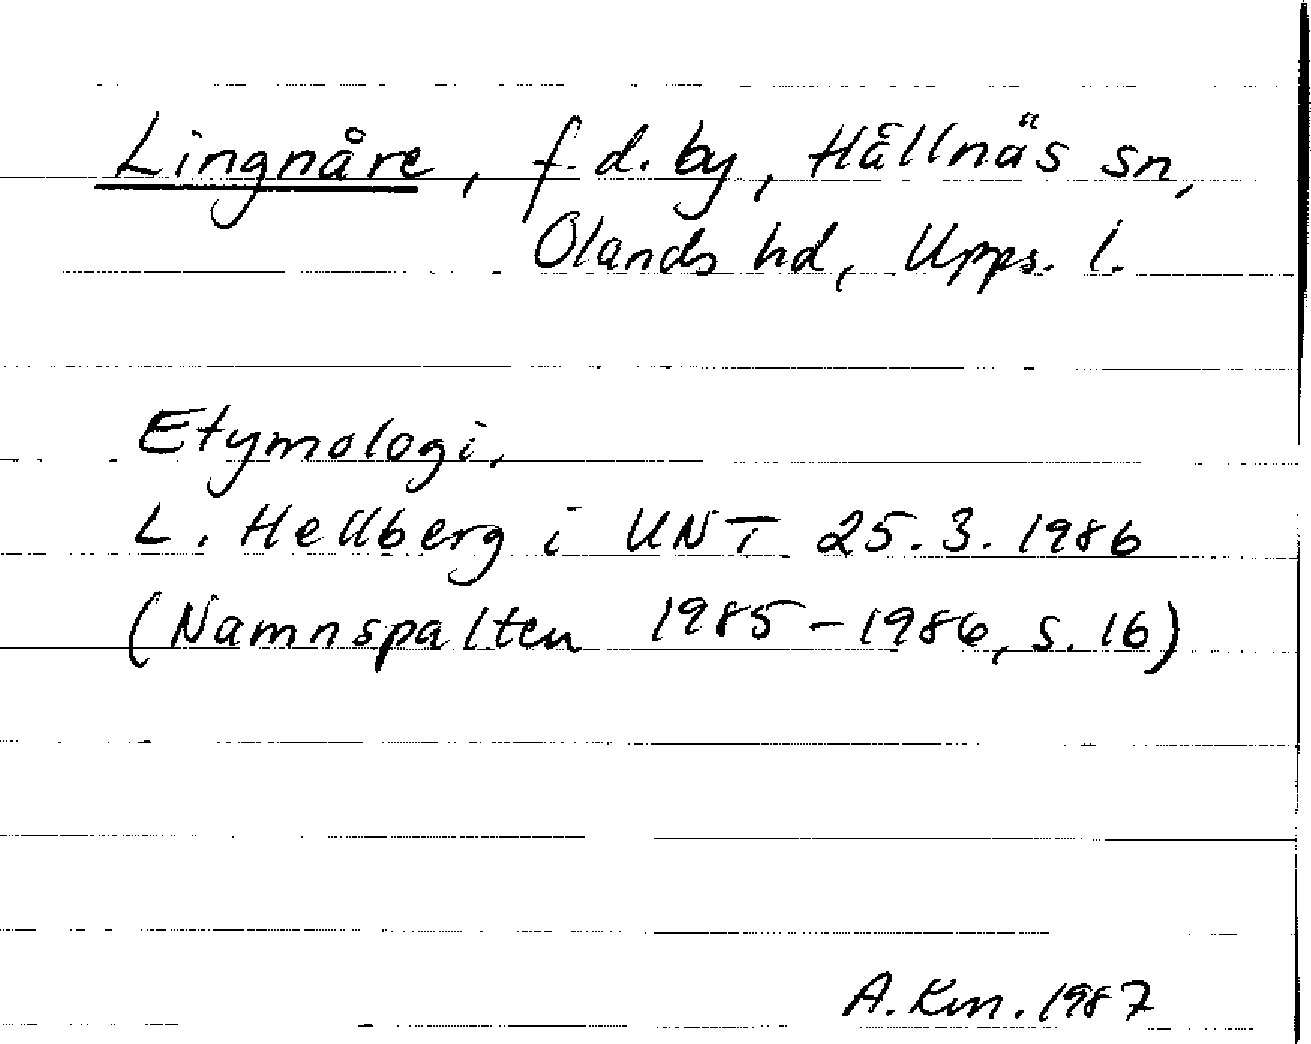 Lingnåre, f. d. by, Hållnäs sn,
Olands hd, Upps. l.
Etymologi.
L. Hellberg i UNT 25.3.1986
(Namnspalten 1985-1986, s. 16)
A. Km. 1987